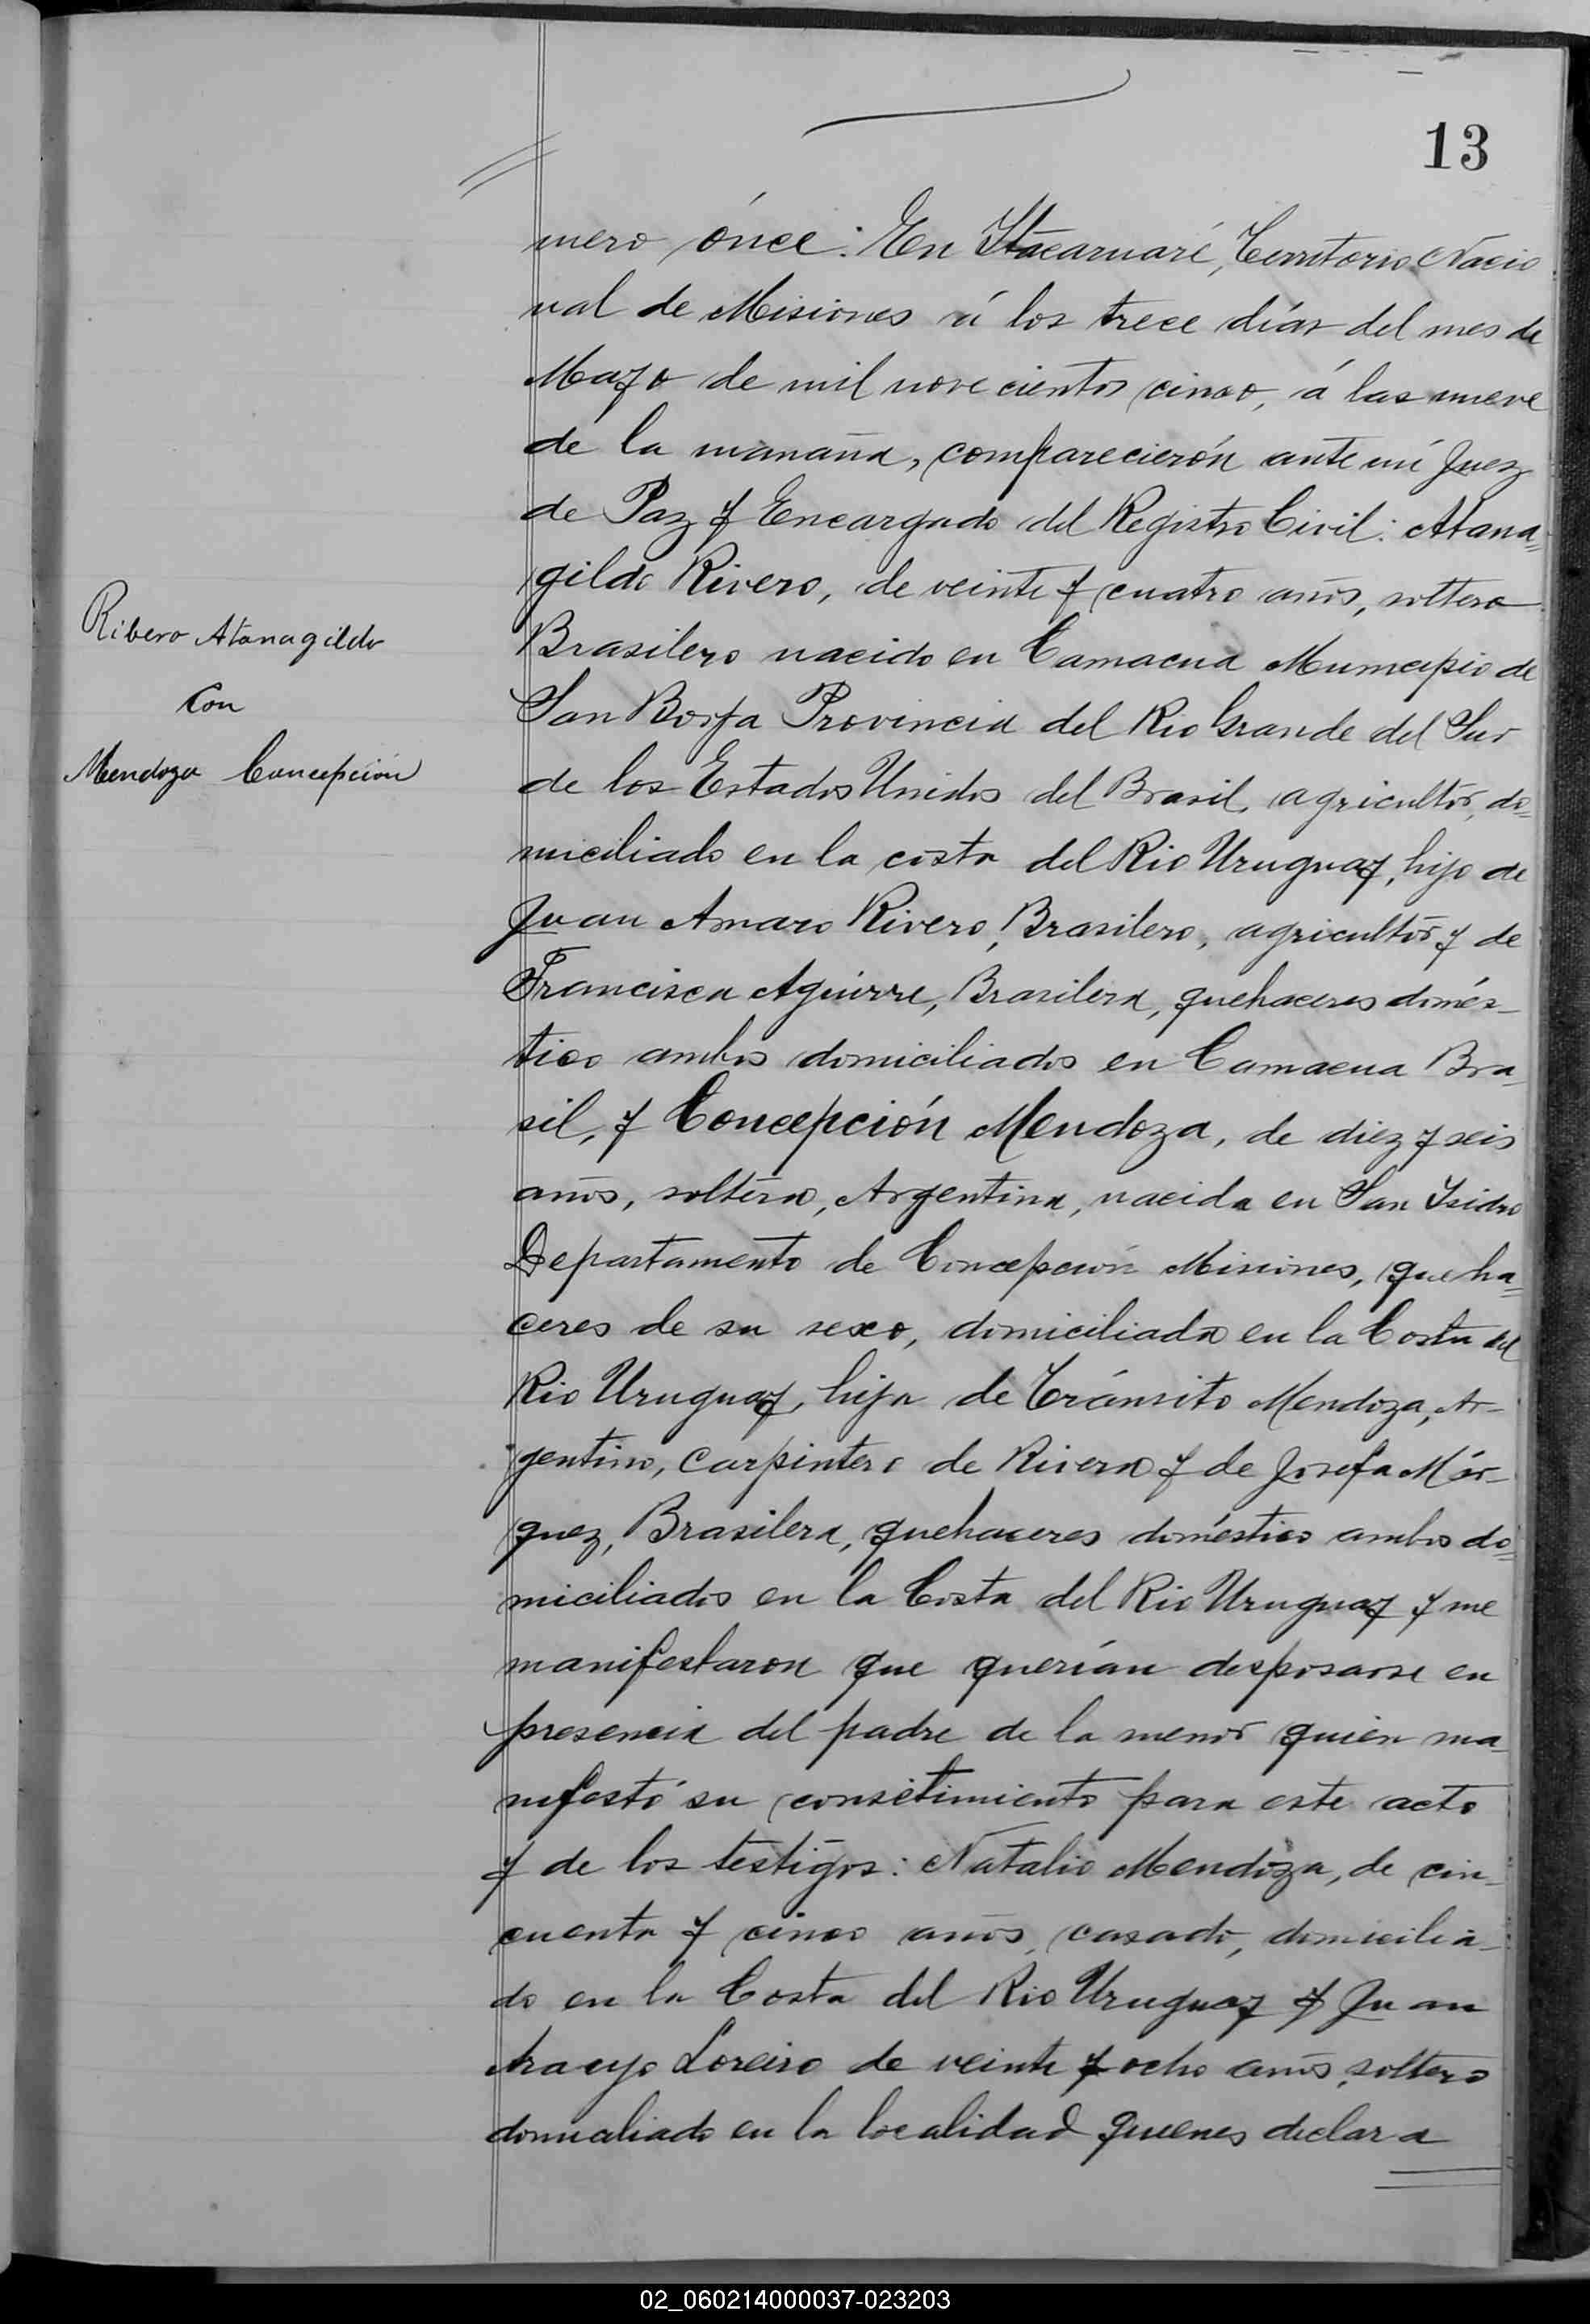 13
mero ónce: En Itacaruaré, Territorio Nacio
nal de Misiones á los trece días del mes de
Mayo de mil nove cientos cinco, á las nueve
de la manaña, comparecierón ante mí Juez
de Paz y Encargado del Registro Civil: Atana=
gildo Rivero, de veinte y cuatro años, soltero
Brasilero nacido en Camacua Municipio de
San Borja Provincia del Rio Grande del Sur
de los Estados Unidos del Brasil, agricultor, do=
miciliado en la costa del Rio Uruguay, hijo de
Juan Amaro Rivero, Brasilero, agricultor y de
Francisca Aguirre, Brasilera, quehaceres domés-
tico ambos domiciliados en Camacua Bra-
sil, y Concepción Mendoza, de diez y seis
años, soltera, Argentina, nacida en San Isidro
Departamento de Concepción Misiones, queha=
ceres de su sexo, domiciliada en la Costa del
Rio Uruguay, hija de Tránsito Mendoza, Ar-
gentino, carpintero de Rivera y de Josefa Már-
quez, Brasilera, quehaceres doméstico ambos do=
miciliados en la Costa del Rio Uruguay y me
manifestaron que querían desposarse en
presencia del padre de la menor quien ma-
nifestó su consetimiento para este acto
y de los testigos: Natalio Mendoza, de cin-
cuenta y cinco años, casado, domicilia-
do en la Costa del Rio Uruguay y Juan
Araujo Loreiro de veinte y ocho años, soltero
domiciliado en la localidad quienes declara
Ribero Atanagildo
Con
Mendoza Concepción
02_060214000037-023203